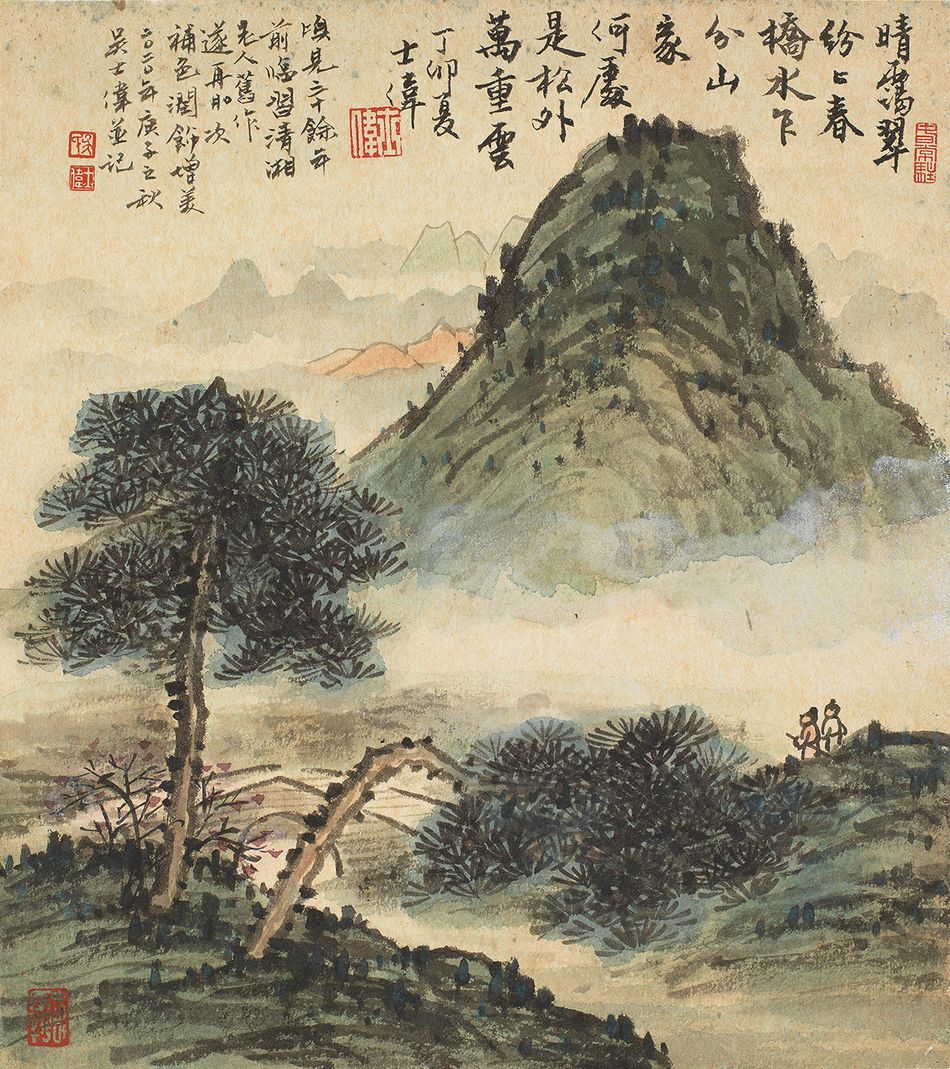 晴靄翠
紛々春
橋水乍
分山
家
何處
是松外
萬重雲
丁卯夏
士偉
士偉
頃見三十餘年
前臨習清湘
老人舊作
遂再加次
補色潤飾增美
二〇二〇年庚子之秋
吳士偉並記
士偉